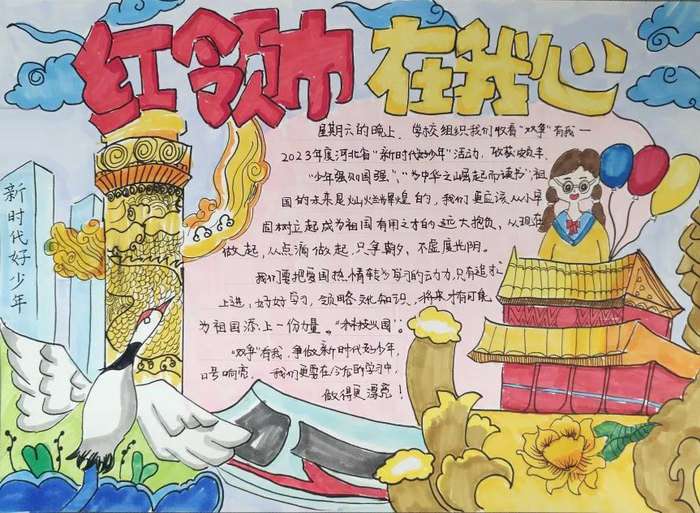 红领巾 在我心
新时代好少年
星期六的晚上，学校组织我们收看"双争"有我一
2023年度河北省"新时代好少年"活动，收获颇丰，
"少年强则国强"，"为中华之崛起而读书"，祖
国的未来是灿烂辉煌的，我们更应该从小牢
固树立起成为祖国有用之才的远大抱负，从现在
做起，从点滴做起，只争朝夕，不虚度光阴。
我们要把爱国热情转为学习的动力，只有追求
上进，好好学习，领略文化知识，将来才有可能
为祖国添上一份力量。"科技兴国"。
"双争"有我，争做新时代好少年，
口号响亮，我们更要在今后的学习中，
做得更漂亮！